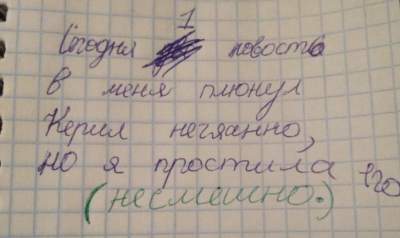 1
Сегодня новость
в меня плюнул
Керил нечяянно,
но я простила его
(несмешно.)